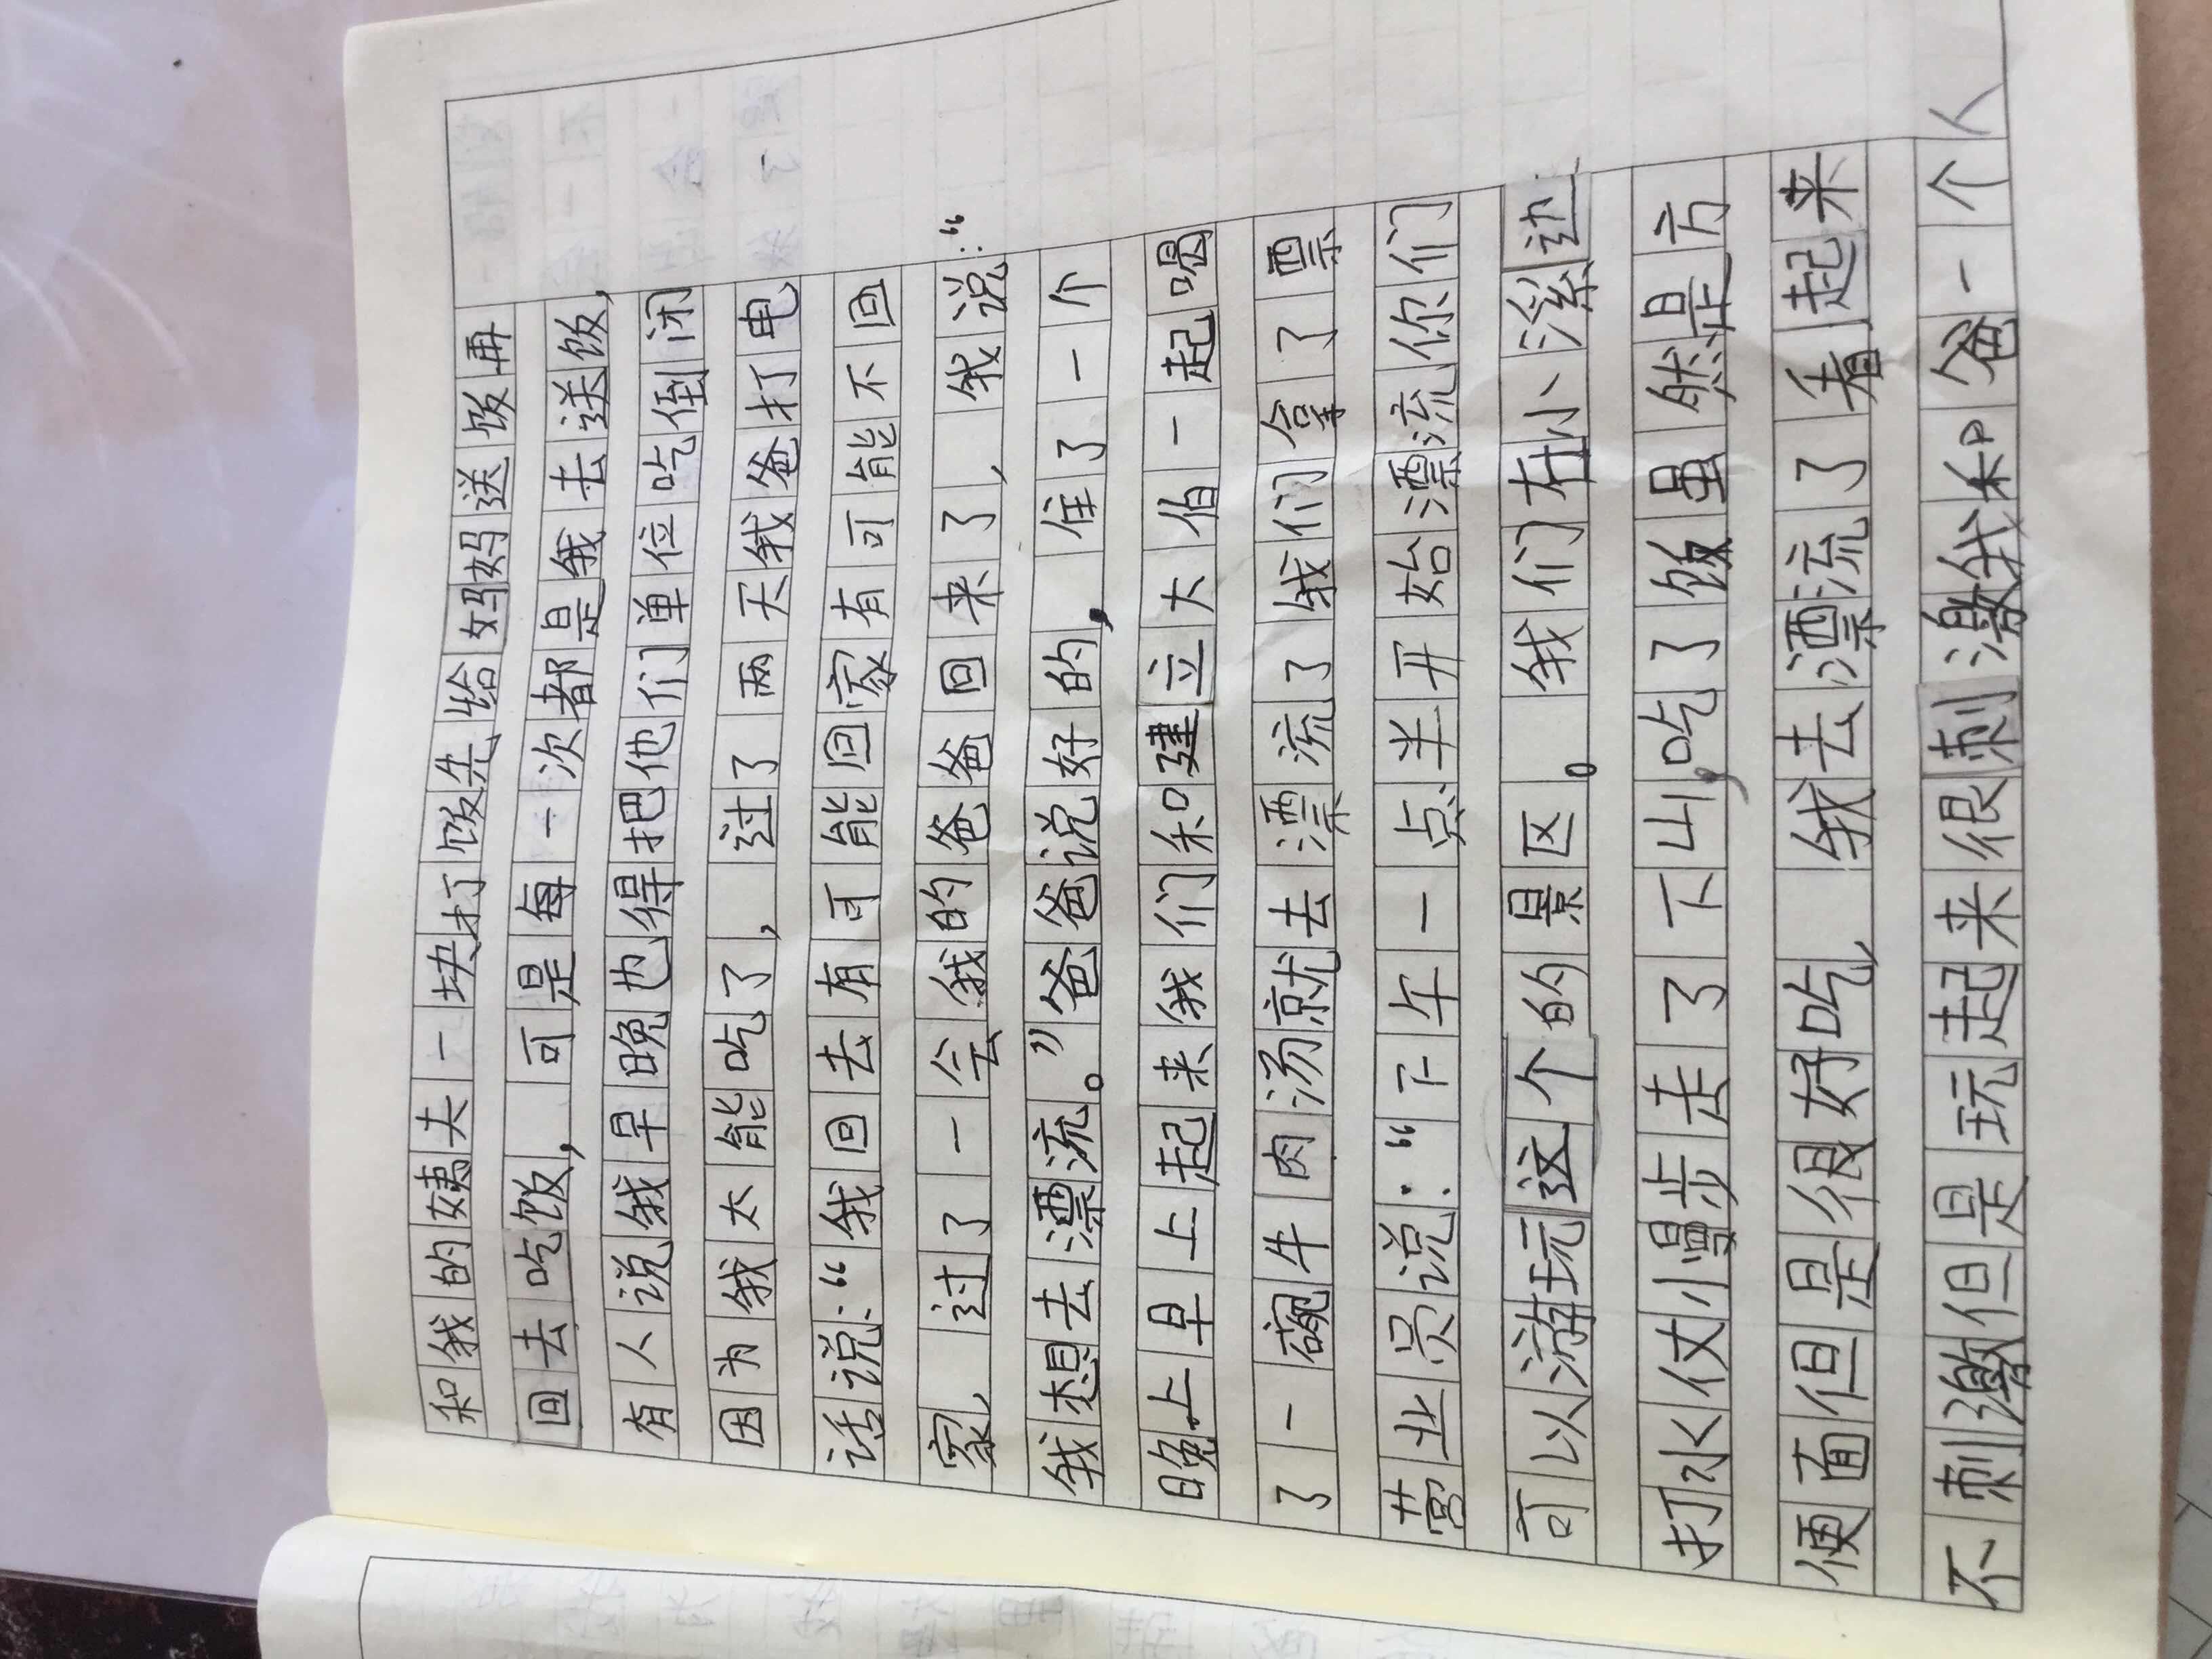 和我的姨夫一块打饭先给妈妈送饭再
回去吃饭，可是每一次都是我去送饭，
有人说我早晚也得把他们单位吃倒闭
因为我太能吃了，过了两天我爸打电
话说：“我回去有可能回家有可能不回
家，过了一会我的爸爸回来了，我说：“
我想去漂流。”爸爸说好的，住了一个
晚上早上起来我们和建立大伯一起喝
了一碗牛肉汤就去漂流了我们拿了票
营业员说：“下午一点半开始漂流你们
可以游玩这个的景区。我们在小溪边
打水仗慢步走了下山，吃了饭虽然是方
便面但是很好吃，我去漂流了看起来
不刺激但是玩起来很刺激我和爸一个人